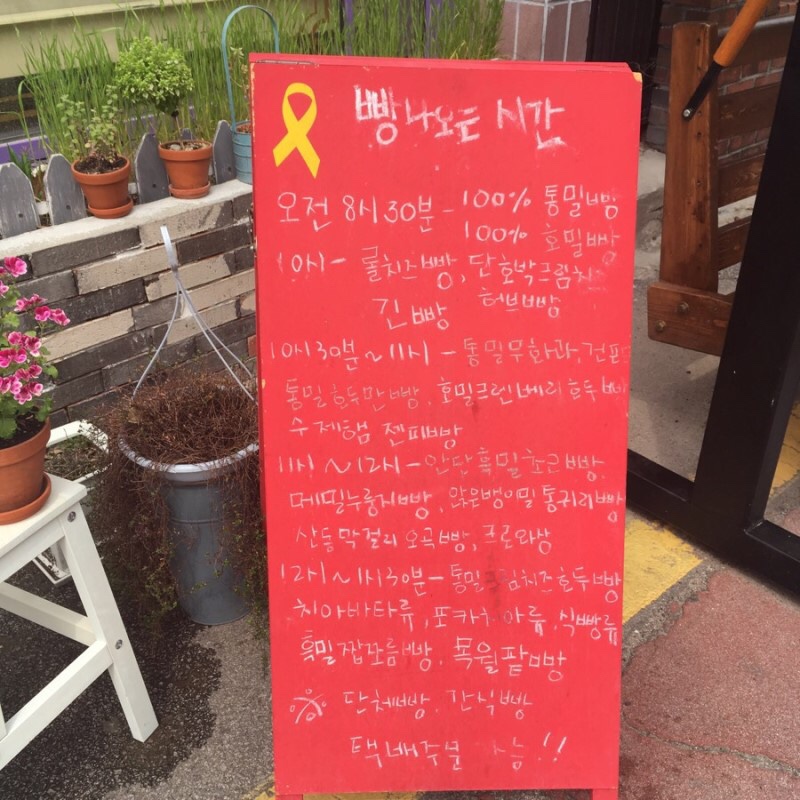 빵 나오는 시간
오전 8시 30분 - 100% 통밀빵
100% 호밀빵
10시 - 롤치즈빵, 단호박크림치즈
긴빵 허브빵
10시 30분 ~ 11시 - 통밀무화과, 건포도
통밀호두만빵, 호밀크렌베리호두빵
수제햄 젠피빵
11시 ~ 12시 - 안단흑밀초코빵,
메밀누룽지빵, 앉은뱅이밀통귀리빵
산동막걸리 오곡빵, 크로와상
12시 ~ 1시 30분 - 통밀크림치즈호두빵
치아바타류, 포카치아류, 식빵류
흑밀짭쪼름빵, 목월팥빵
단체빵, 간식빵
택배주문